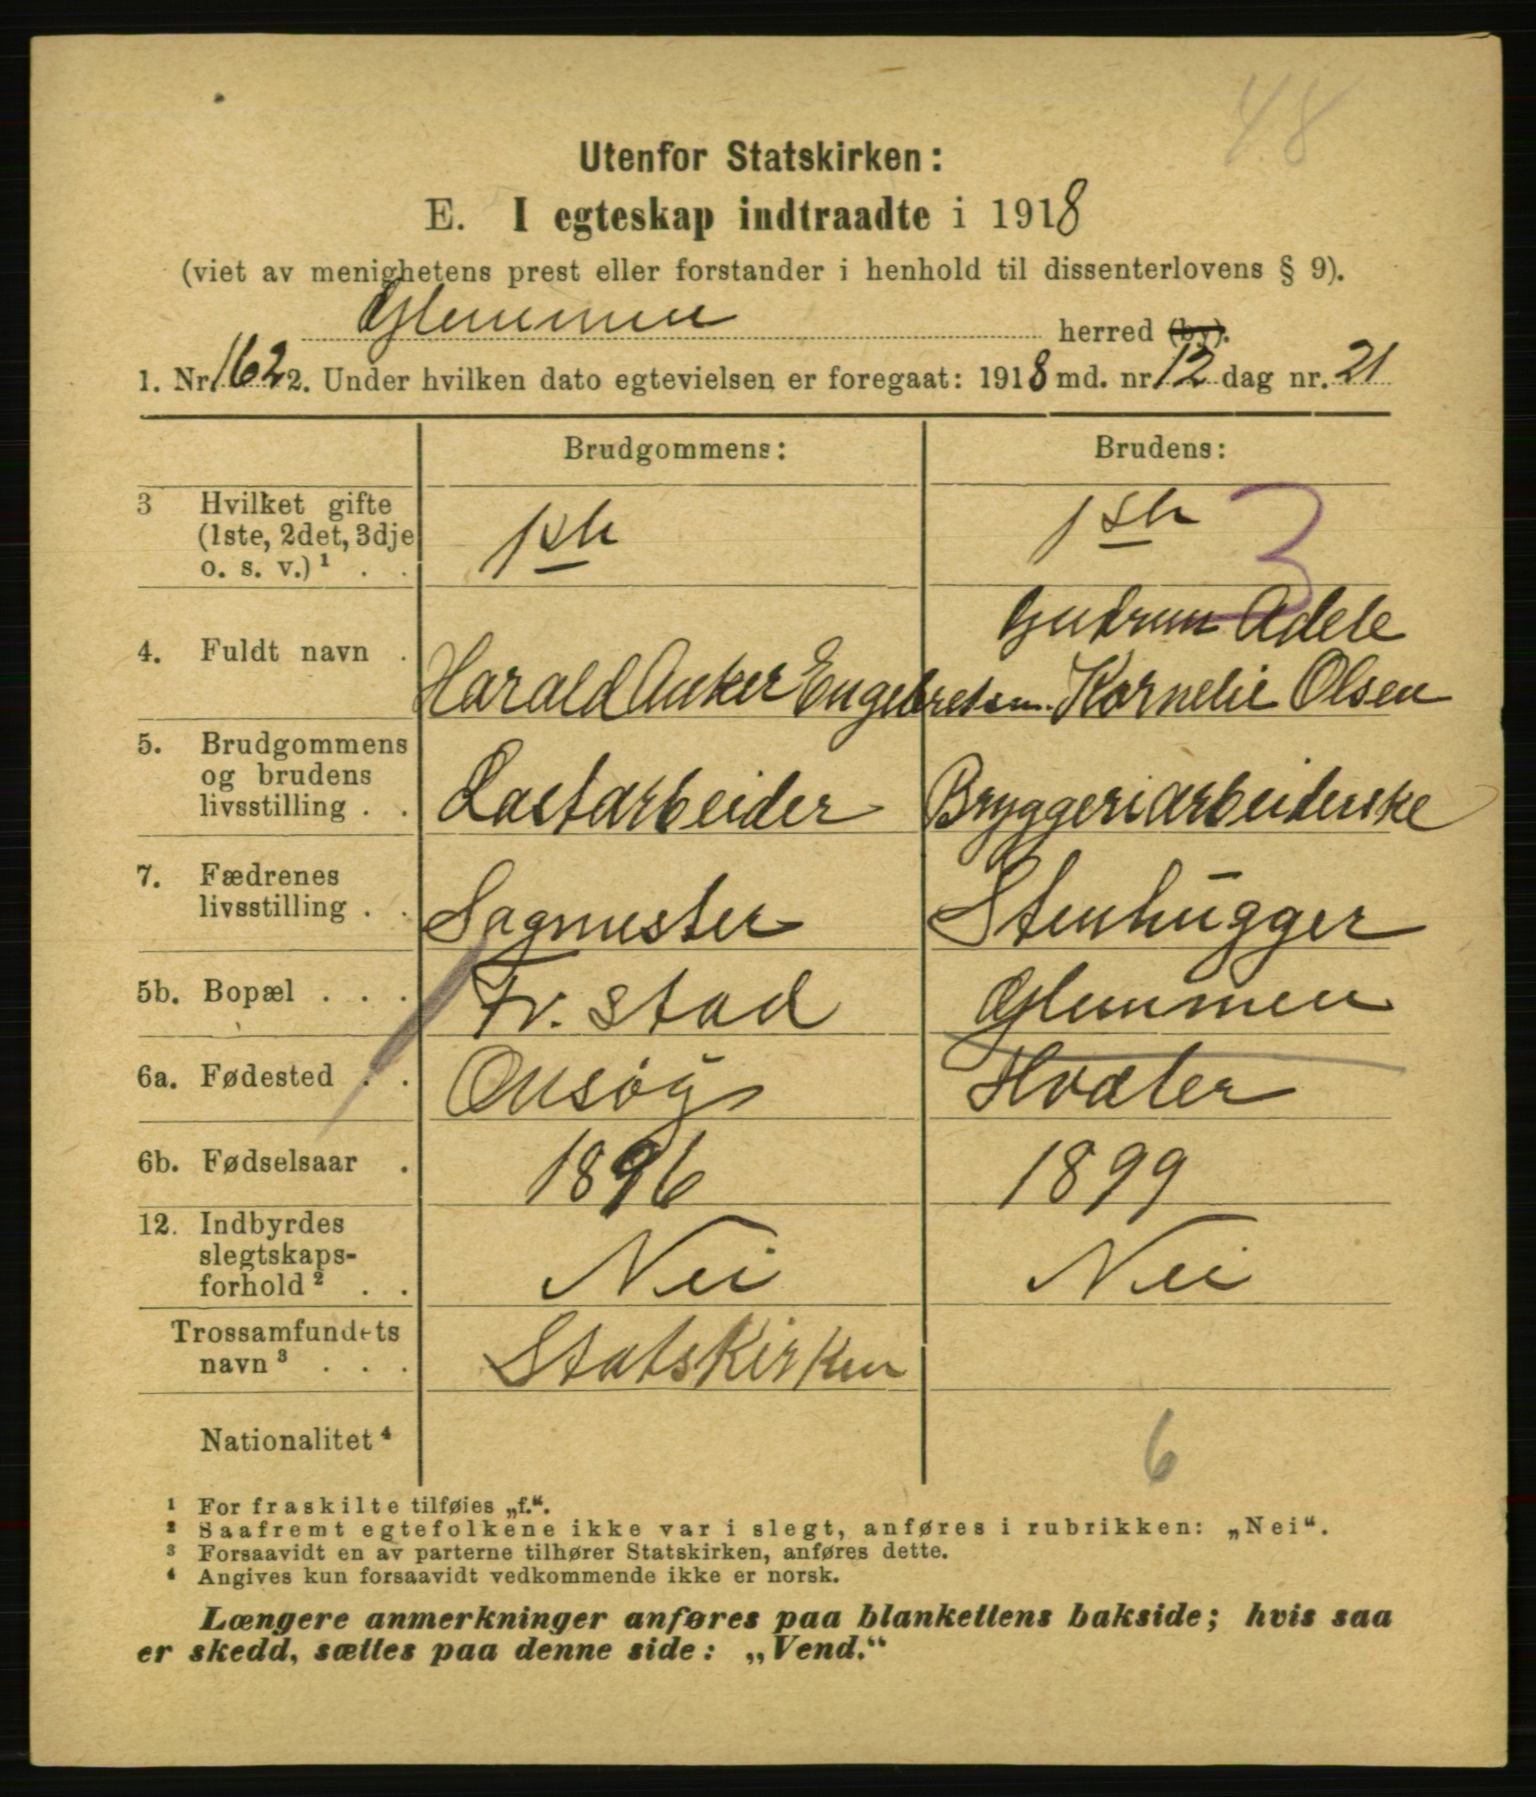 48
Utenfor Statskirken:
E. I egteskap indtraadte i 1918
(viet av menighetens prest eller forstander i henhold til dissenterlovens § 9).
Glemmen herred (by).
1. Nr. 162 2. Under hvilken dato egtevielsen er foregaat: 1918 md. nr. 12 dag nr. 21
Brudgommens: Brudens:
3 Hvilket gifte (1ste, 2det, 3dje o. s. v.)¹ . . 1ste 1ste 3
4. Fuldt navn . Harald Anker Engebretsen. Gudrun Adele Kornelie Olsen
5. Brudgommens og brudens livsstilling . . Lastarbeider Bryggeriarbeiderske
7. Fædrenes livsstilling . . Sagmester Stenhugger
5b. Bopæl . . . Fr. stad Glemmen
6a. Fødested . . Onsøy Hvaler
6b. Fødselsaar . 1896 1899
12. Indbyrdes slegtskaps- forhold² . . Nei Nei
Trossamfundets navn³ . . . Statskirken
Nationalitet⁴ 6
¹ For fraskilte tilføies „f.“.
² Saafremt egtefolkene ikke var i slegt, anføres i rubrikken: „Nei“.
³ Forsaavidt en av parterne tilhører Statskirken, anføres dette.
⁴ Angives kun forsaavidt vedkommende ikke er norsk.
Længere anmerkninger anføres paa blankettens bakside; hvis saa
er skedd, sættes paa denne side: „Vend.“